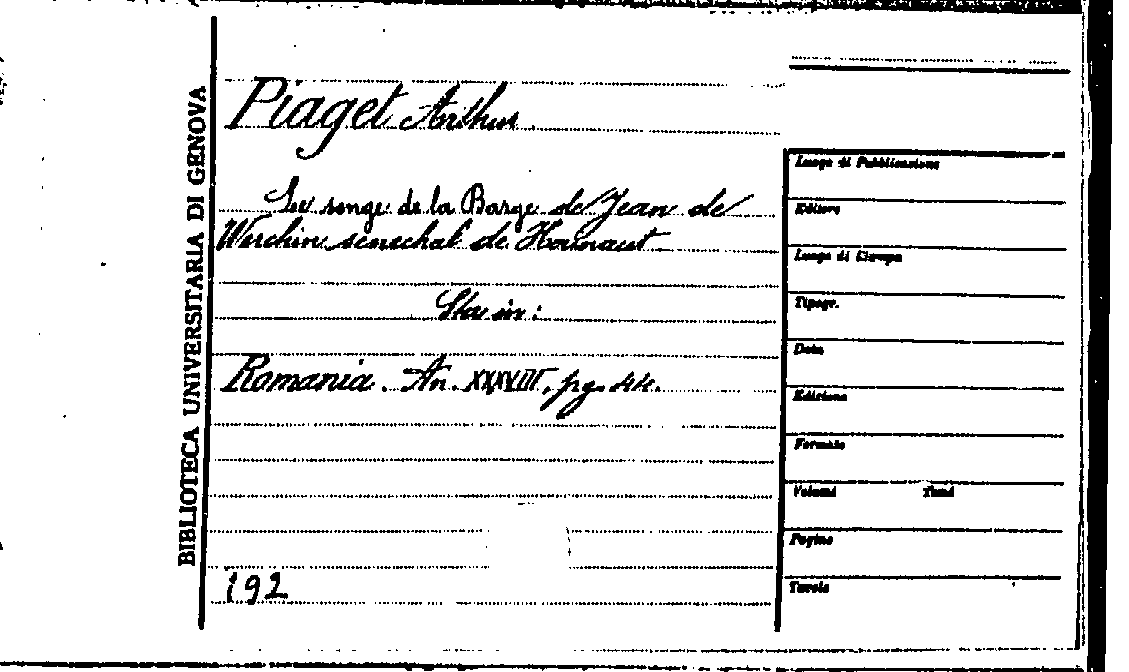 BIBLIOTECA UNIVERSITARIA DI GENOVA
Piaget Arthur
Le songe de la Barge de Jean de
Werchin, senechal de Hainaut
Sta in:
Romania. An. XXXVIII, pg. 44.
192
Luogo di Pubblicazione
Editore
Luogo di Stampa
Tipogr.
Data
Edizione
Formato
Volumi Tomi
Pagine
Tavole